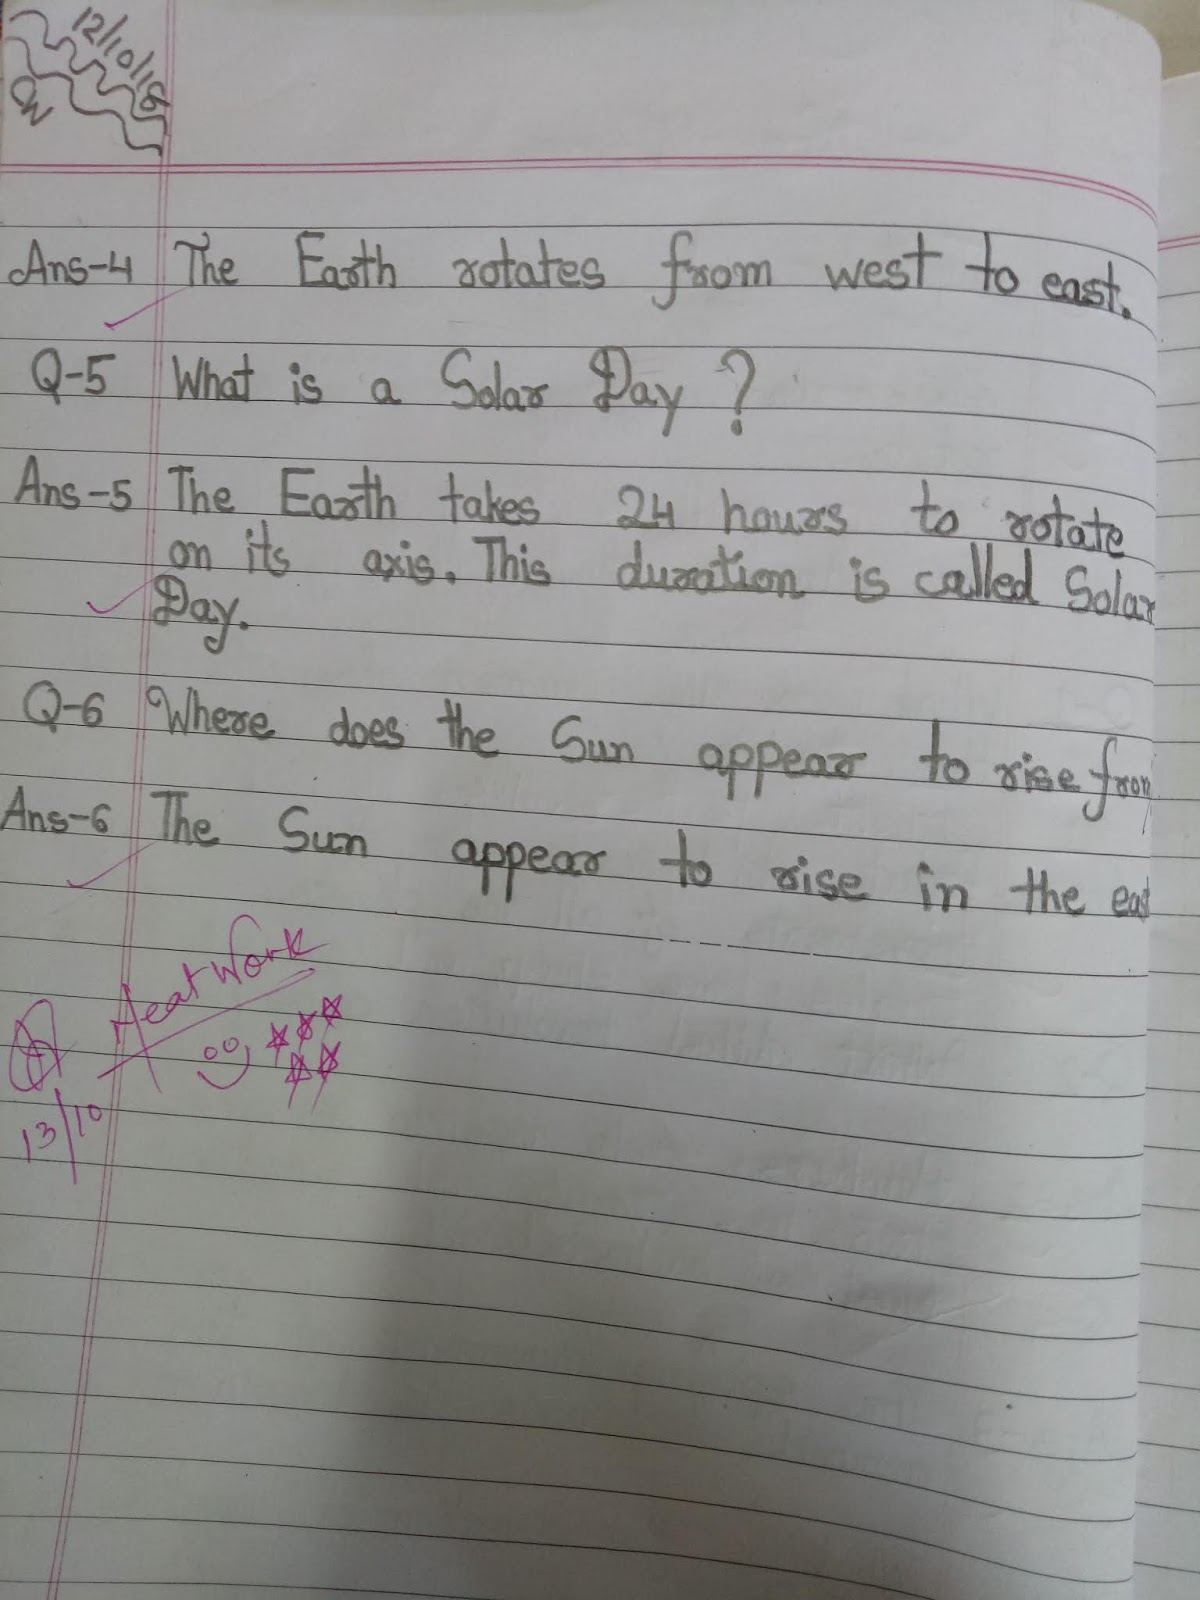 12/10/18
CW
Ans-4 The Earth rotates from west to east.
Q-5 What is a Solar Day ?
Ans-5 The Earth takes 24 hours to rotate
on its axis. This duration is called Solar
Day.
Q-6 Where does the Sun appear to rise from
Ans-6 The Sun appear to rise in the east
Neat Work
13/10